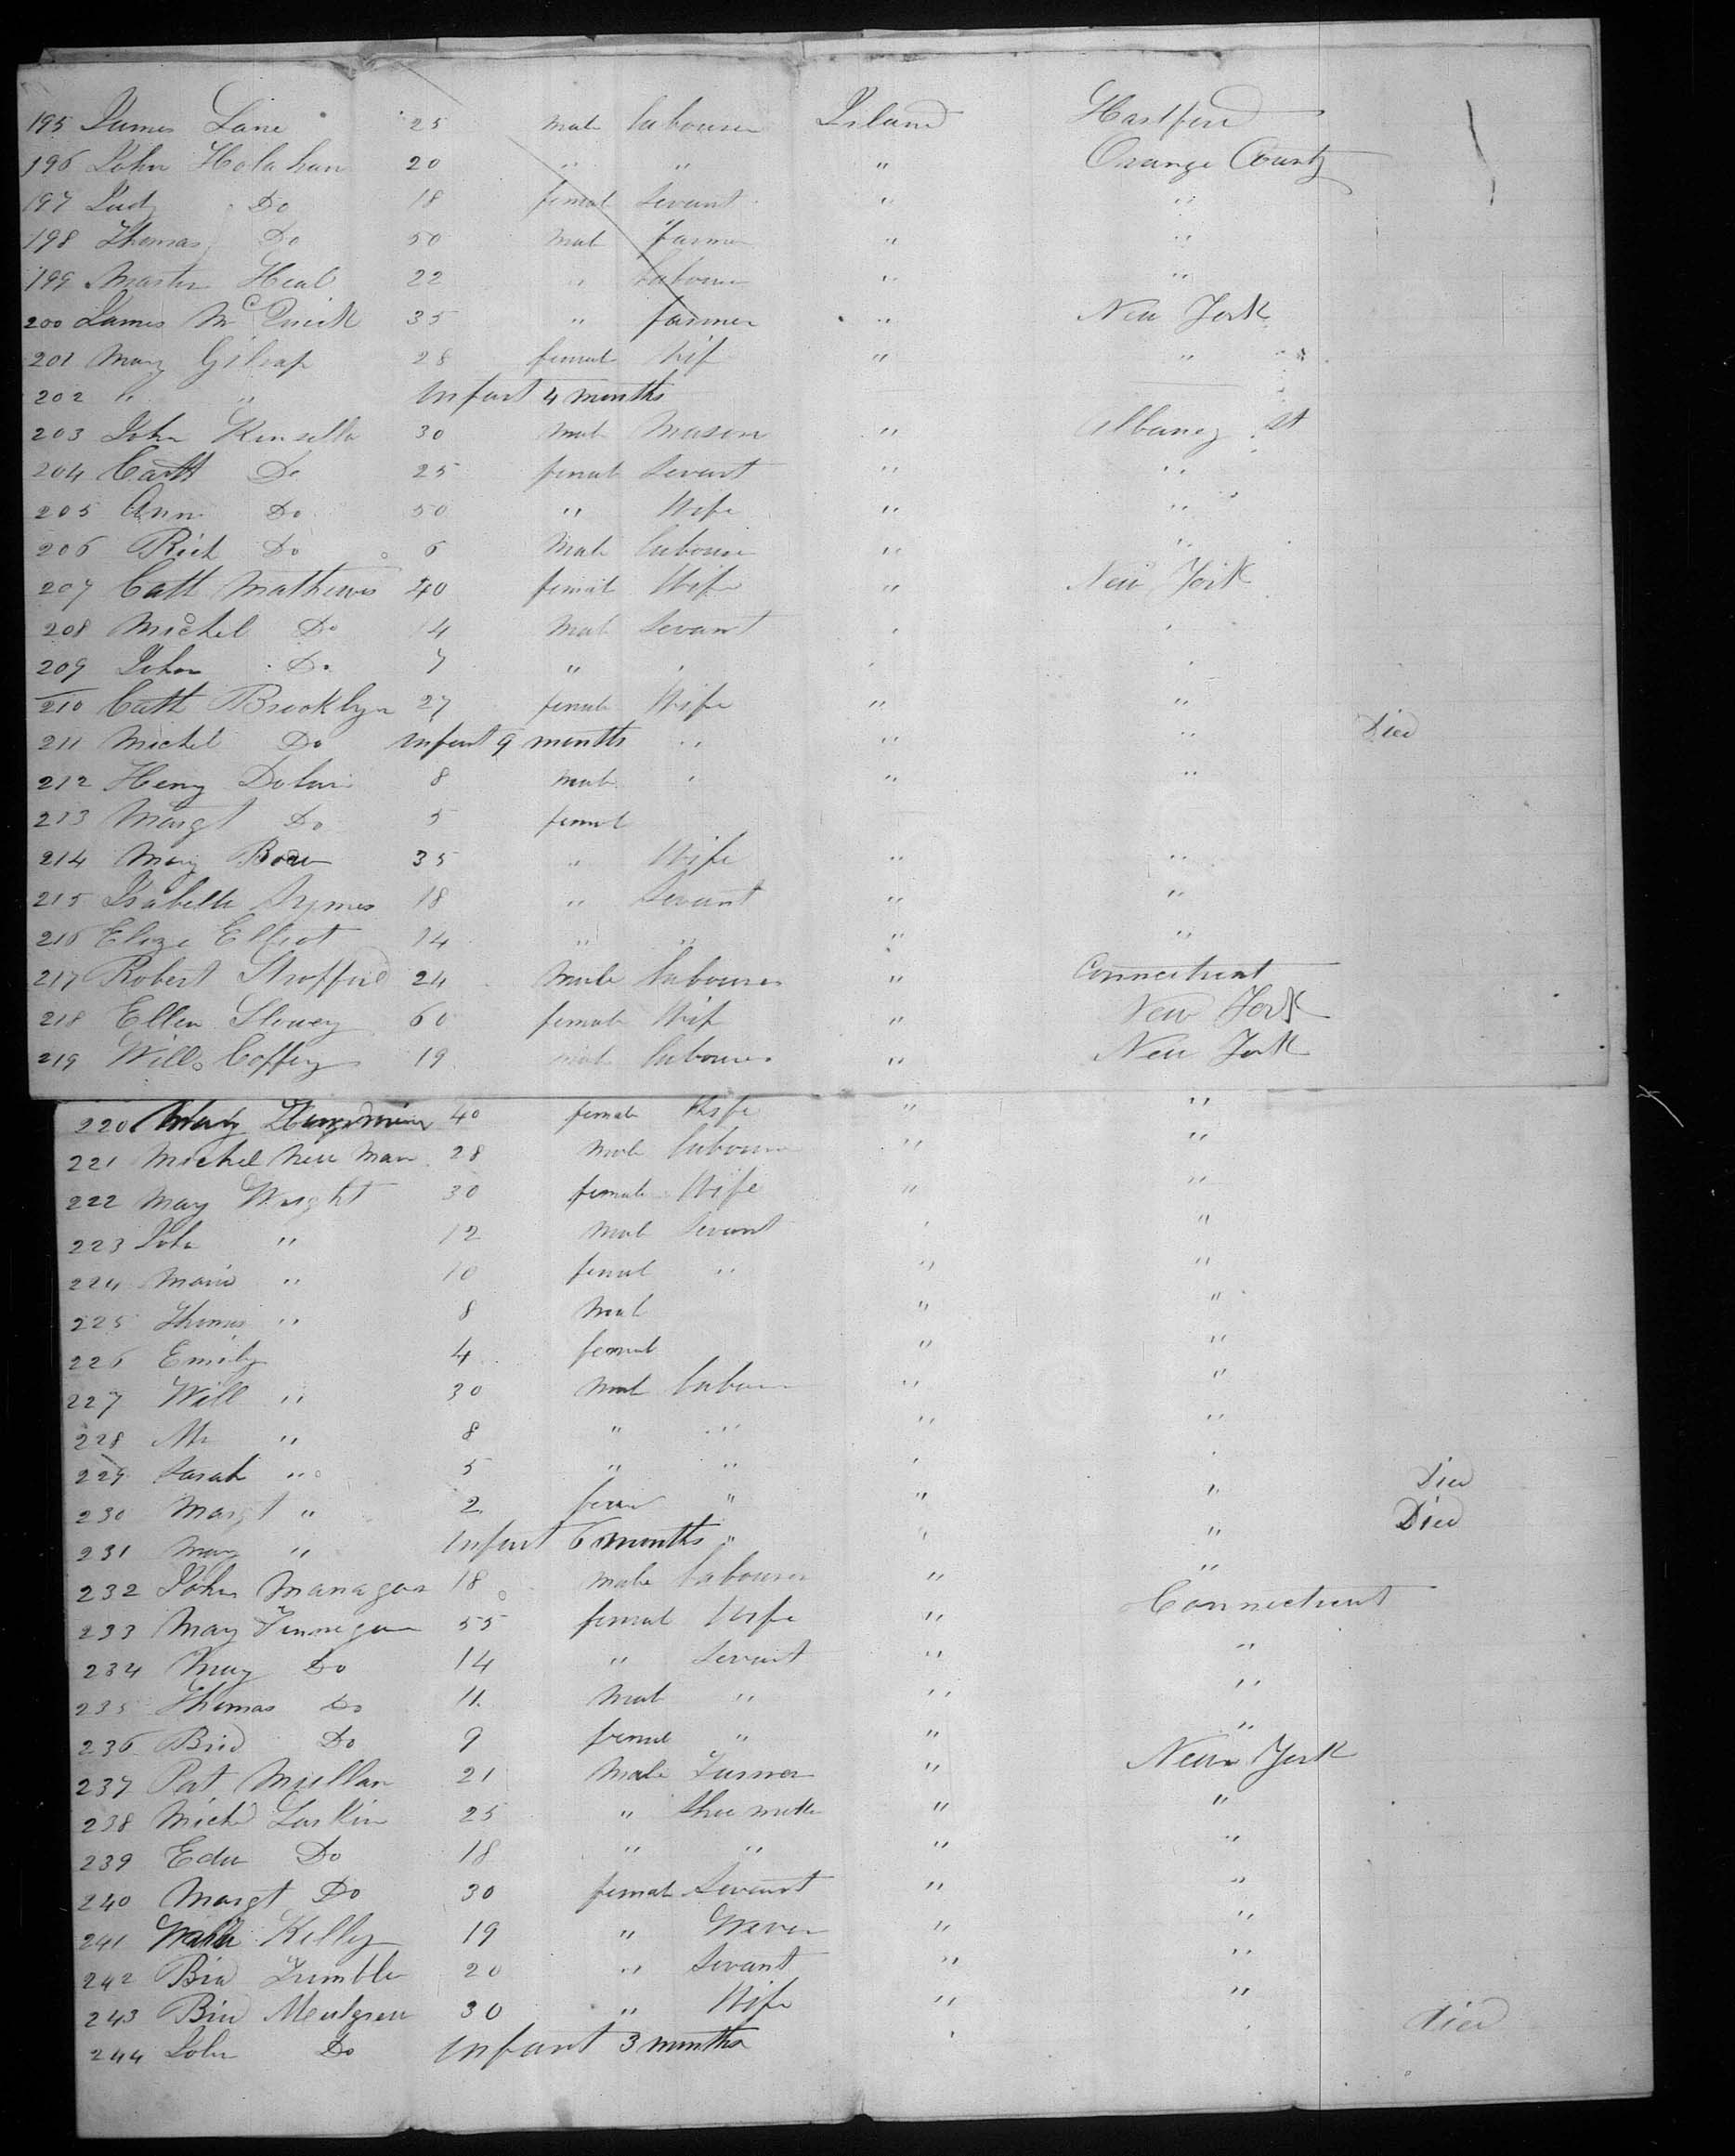 195 James Lane 25 male labourer Irland Hartford
196 John Holahan 20 " " " Orange County
197 Judy Do 18 femal Servant " "
198 Thomas Do 50 male farmer " "
199 Martin Heal 22 " labourer " "
200 James Mc Quick 35 " farmer " New York
201 Mary Gilrap 28 female Wife " "
202 " " Infant 4 months
203 John Kinsella 30 male Mason " Albaney St
204 Cath Do 25 femal Servant " "
205 Ann Do 50 " Wife " "
206 Rich Do 6 Male labourer " "
207 Cath Mathews 40 female Wife " New York
208 Michel Do 14 Male Servant " "
209 John Do 7 " " " "
210 Cath Brooklyn 27 female Wife " "
211 Michel Do Infant 9 months " " " Died
212 Heny Dolan 8 male " " "
213 Margt Do 5 femal
214 Mary 35 " Wife " "
215 Isabella Symes 18 " Servant " "
216 Eliza Elliot 14 " " " "
217 Robert Strofford 24 Male labourer " Connecticut
218 Ellen Slowey 60 female Wife " New York
219 Will Coffey 19 male labourer " New York
220 Mary 40 female Wife " "
221 Michel New Man 28 Male labourer " "
222 Mary Wright 30 female Wife " "
223 John " 12 Male Servant " "
224 Maria " 10 femal " " "
225 Thomas " 8 Male " "
226 Emily 4 femal " "
227 Will " 30 Male labour " "
228 " 8 " " " "
229 Sarah " 5 " " " " Died
230 Margt " 2 fem " " " Died
231 Mary " Infant 6 months " " "
232 John Managan 18 male labourer " "
233 Mary Finnegan 55 femal Wife " Connecticut
234 Mary Do 14 " Servant " "
235 Thomas Do 11 Male " " "
236 Brid Do 9 femal " " "
237 Pat Mullan 21 Male Farmer " New York
238 Michl Larkin 25 " Shoe maker " "
239 Edw Do 18 " " " "
240 Margt Do 30 female Servant " "
241 Kelly 19 " Wever " "
242 Brid Trimble 20 " Servant " "
243 Brid Meulgrew 30 " Wife " "
244 John Do Infant 3 months " " Died